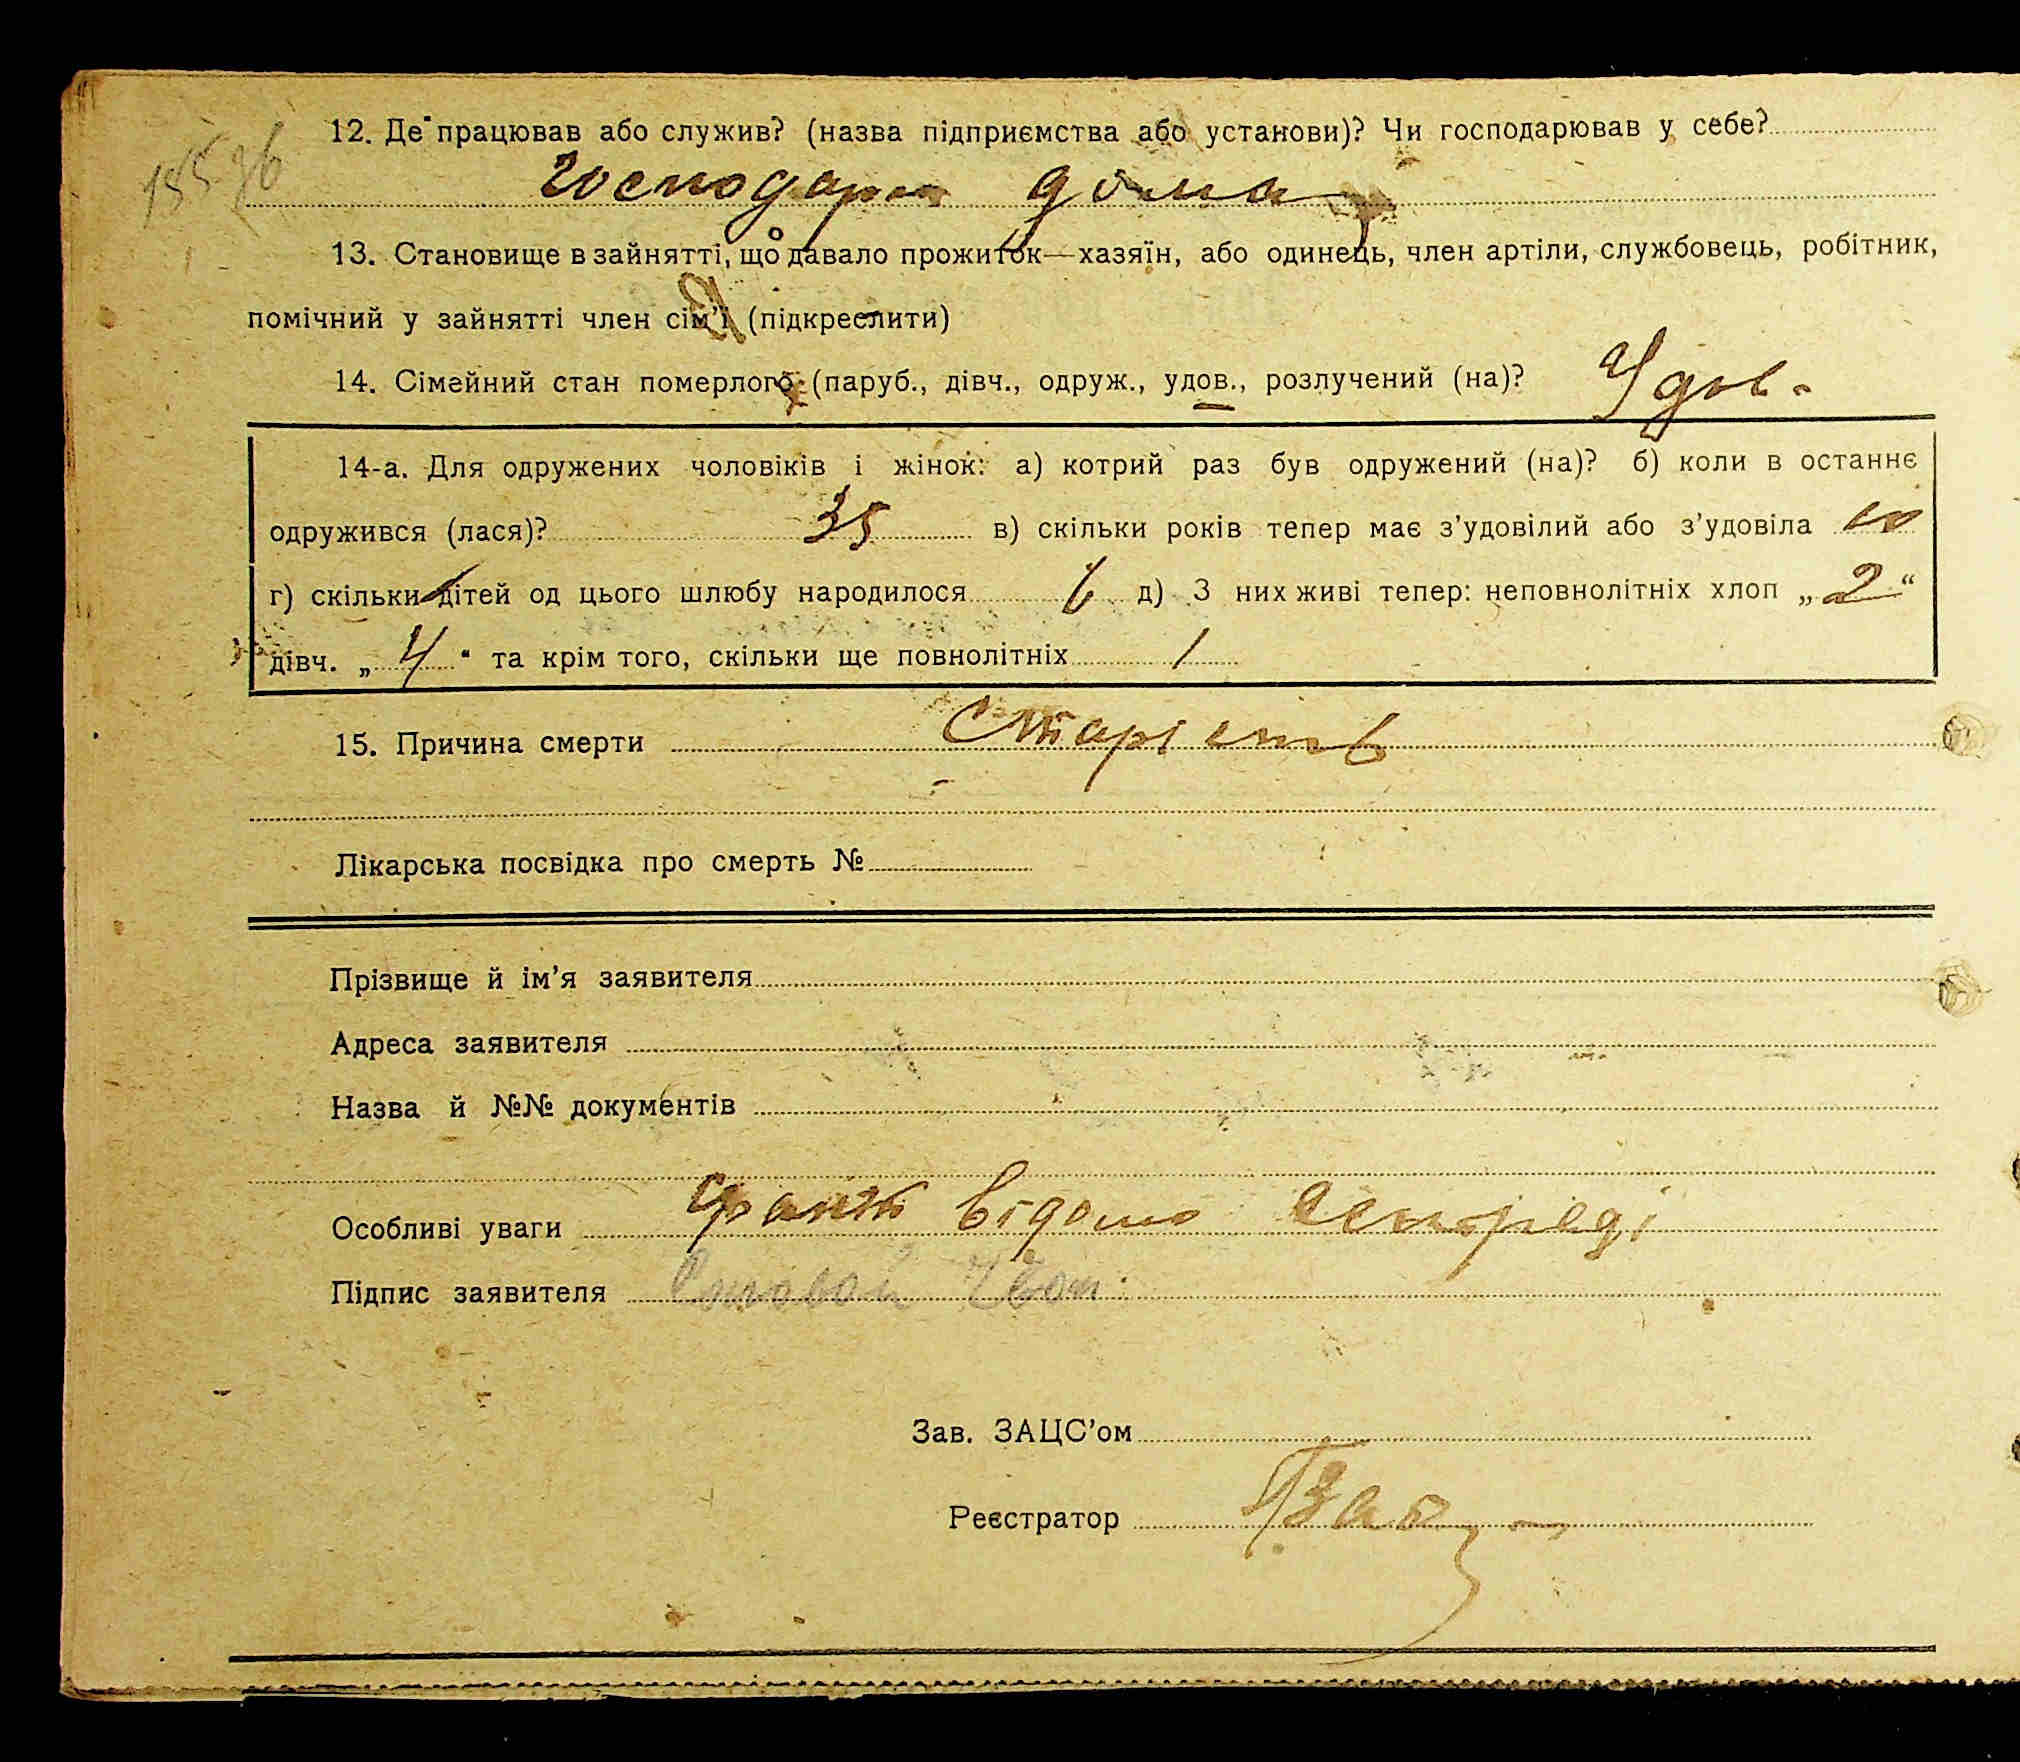 12. Де працював або служив? (назва підприємства або установи)? Чи господарював у себе?
Господарка дома
13. Становище в зайнятті, що давало прожиток—хазяїн, або одинець, член артіли, службовець, робітник,
помічний у зайнятті член сім'ї (підкреслити)
14. Сімейний стан померлого (паруб., дівч., одруж., удов., розлучений (на)? Удов.
14-а. Для одружених чоловіків і жінок: а) котрий раз був одружений (на)? б) коли в останнє
одружився (лася)? 35 в) скільки років тепер має з'удовілий або з'удовіла
г) скільки дітей од цього шлюбу народилося 6 д) З них живі тепер: неповнолітніх хлоп „ 2 “
дівч. „ 4 “ та крім того, скільки ще повнолітніх 1
15. Причина смерти Старість
Лікарська посвідка про смерть №
Прізвище й ім'я заявителя
Адреса заявителя
Назва й №№ документів
Особливі уваги Факт відомо сельраді
Підпис заявителя
Зав. ЗАЦС'ом
Реєстратор